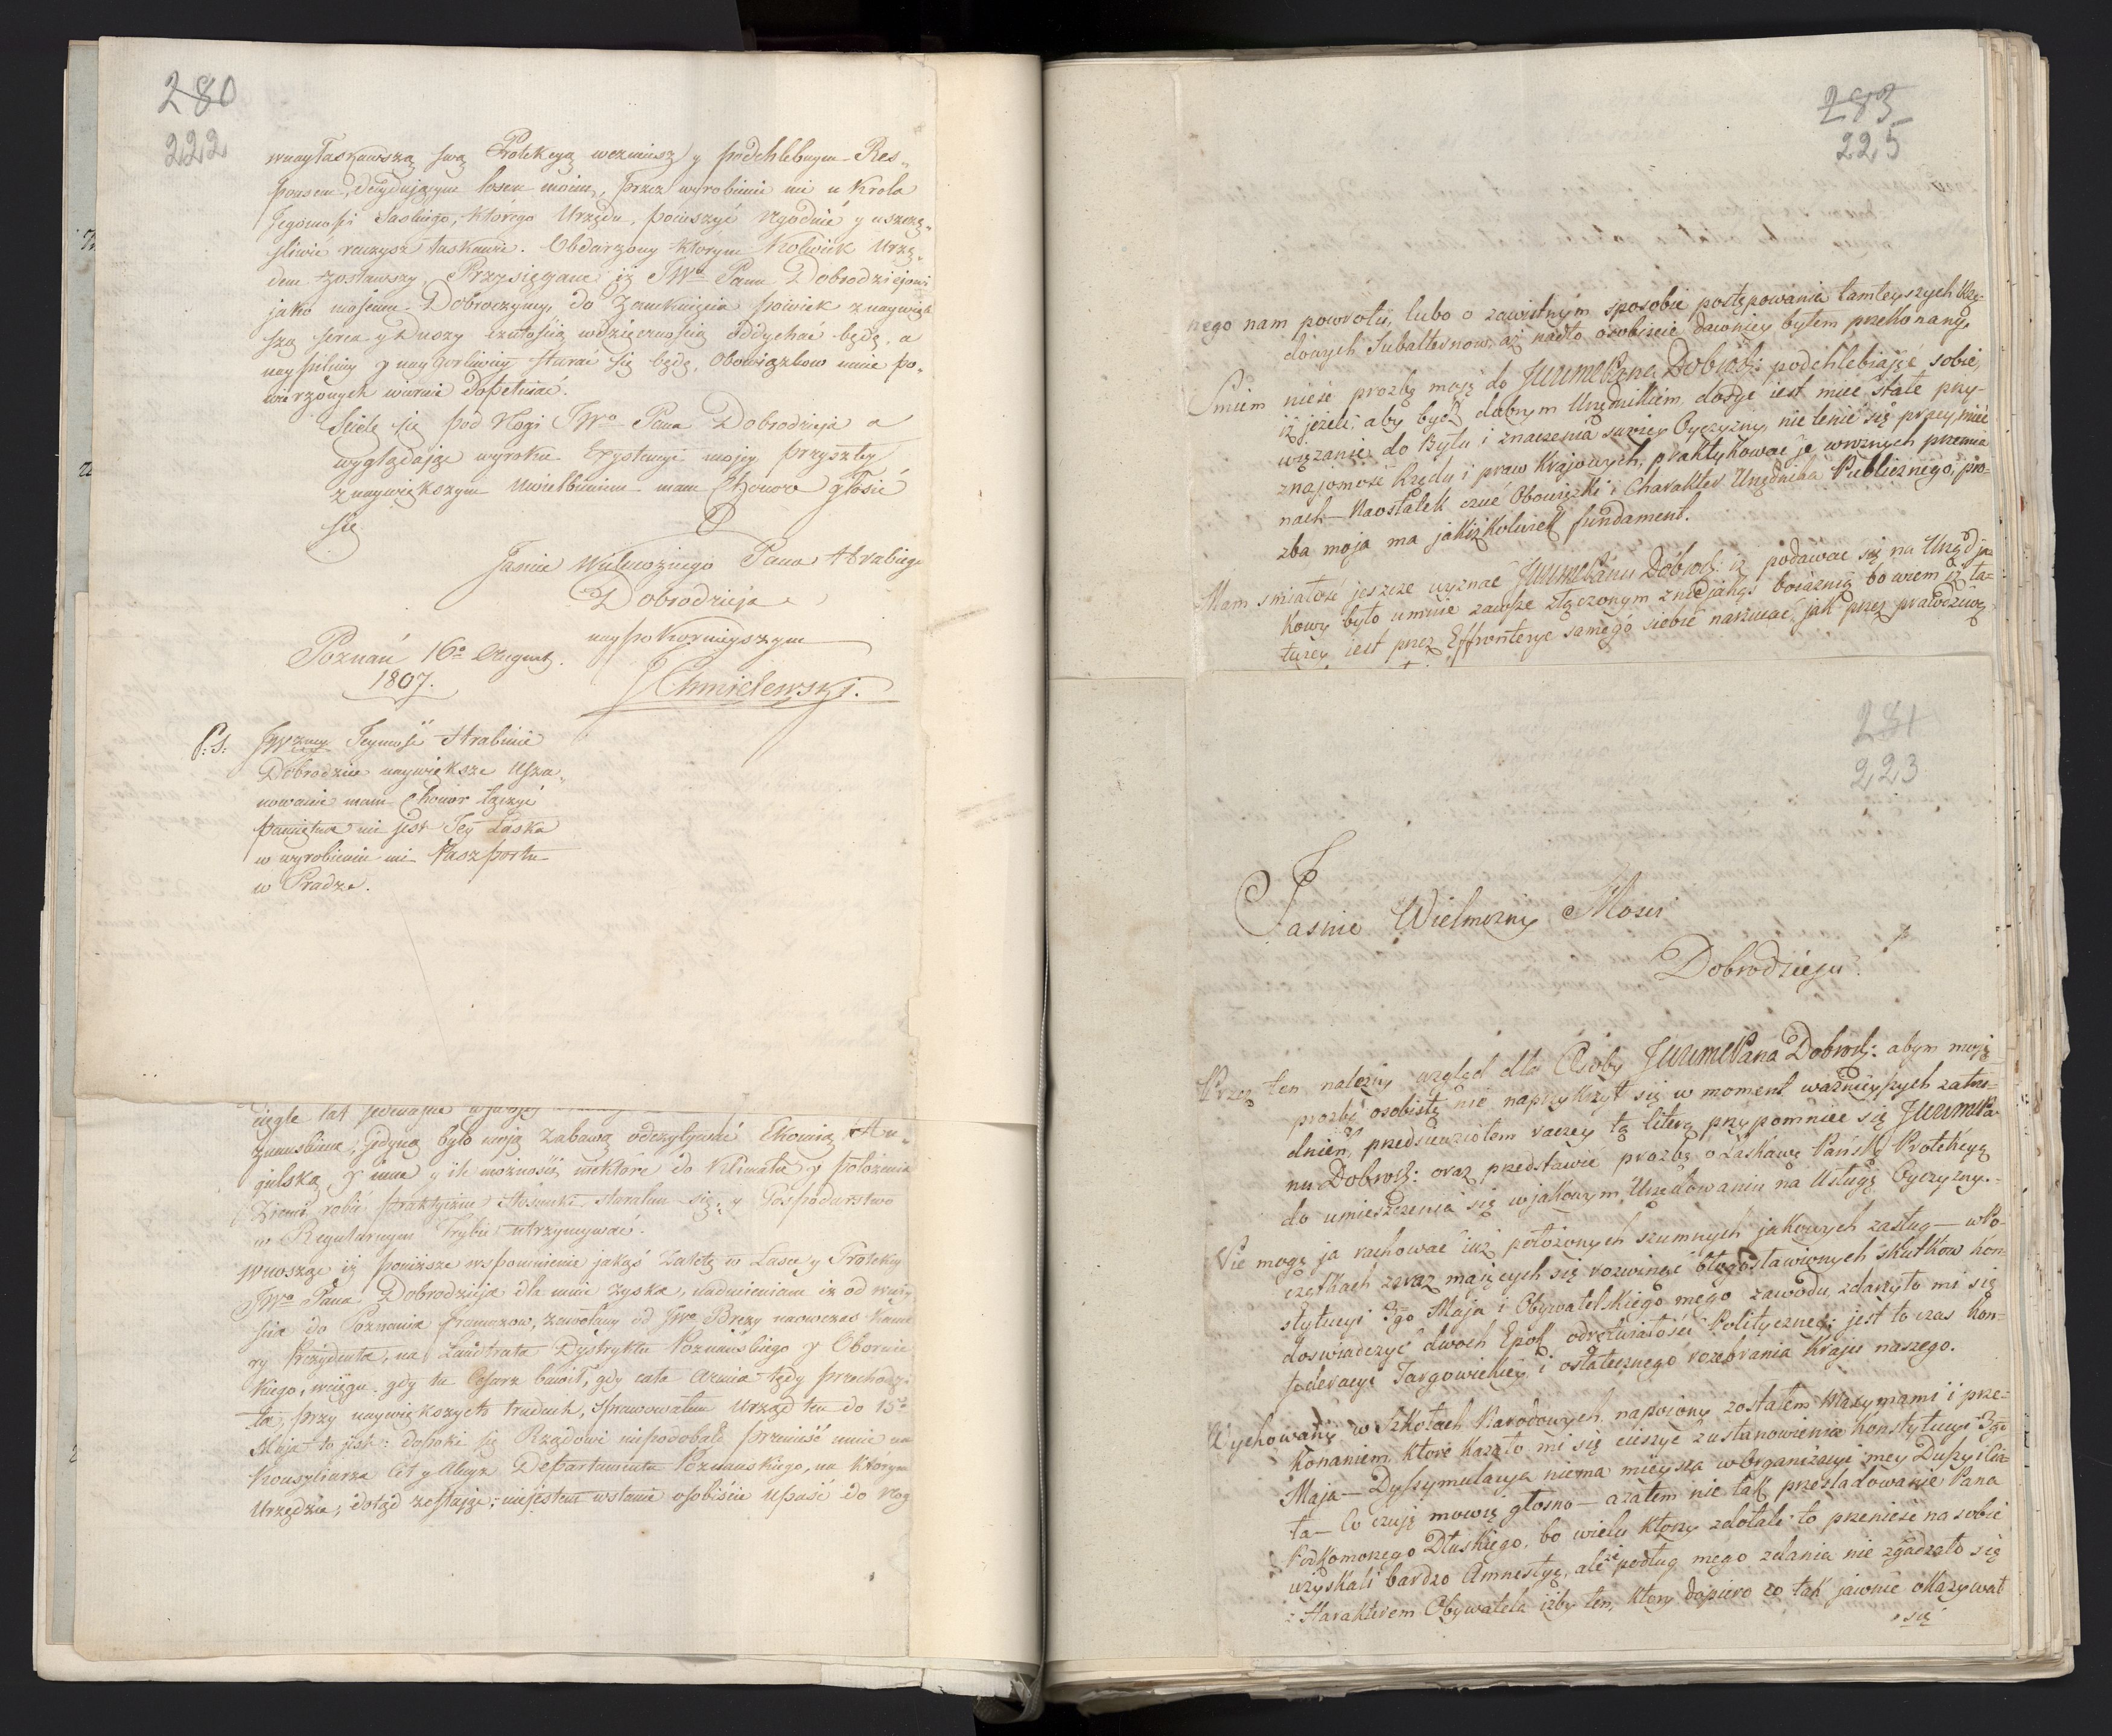 280
222
w nayłaskawszą swą Protekcyą weźmiesz y podchlebnym Res„
ponsem, decydującym losem moim, przez wyrobienie mi u Krola
Jegomości Saskiego, którego Urzędu, pocieszyć zgodnie y uszczę„
śliwić raczysz łaskawie. Obdarzony którym kolwiek Urzę„
dem zostawszy, Przysięgam iż JWo Panu Dobrodziejowi
jako mojemu Dobroczyńcy, do zamknięcia powiek z naywięk
szą serca y Duszy czułością wdzięcznością oddychać będę, a
naypilniey y naygorliwiey starać się będę, Obowiązkow mnie po„
wierzonych wiernie dopełniać.
Ścielę się pod Nogi JWo Pana Dobrodzieja a
wyglądając wyroku Exystencyi mojey przyszłey
z naywiększym uwielbieniem mam Chonor głosić
się
Jaśnie Wielmożnego Pana Hrabiego
Dobrodzieja
naypokornieyszym
Poznań 16o August.
1807.
JChmielewski.
P:S: JWżney Jeymość Hrabinie
Dobrodzice naywiększe Usza„
nowanie mam Chonor łączyć
pamiętna mi jest Jey Łaska
w wyrobieniu mi Paszportu
w Pradze.
ciągle lat
zmusbina; jedyną było moją zabawą odczytywać Ekonią An„
gielską y inne y ile możności niektóre do Klimatu y położenia
Ziemi robić praktyczne stosunki starałem się; y Gospodarstwo
w Regularnym Trybie utrzymywać.
Wnosząc iż poniższe wspomnienie jakąś zaletę w Łasce y Protekcyi
JWo Pana Dobrodzieja dla mnie zyska, nadmieniam iż od weyś
ścia do Poznania francuzow, zawołany od JWo Brezy naowczas Kame
ry Prezydenta, na Landrata Dystryktu Poznańskiego y Obornic
kiego, w ciągu gdy tu Cesarz bawił, gdy cała Armia tędy przechodzi
ła, przy naywiększych trudach, sprawowałem urząd ten do 15o
Maja to jest: dopoki się Rządowi niepodobało przenieść mnie na
Konsyliarza Cet y Akcyz Departamentu Poznańskiego, na którym
Urzędzie, dotąd zostając; niejestem wstanie osobiście upaść do Nog
283
225
nego nam powrotu, lubo o zawistnym sposobie postępowania tamteyszych Rzą-
dowych Subalternow, aż nadto osobiście dawniey byłem przekonany.
Śmiem nieść prozbę moją do JWWMePana Dobrodz: podchlebiając sobie,
iż jeżeli; aby być dobrym Urzędnikiem, dosyć jest mieć stałe przy-
wiązanie do Bytu i znaczenia swoiey Oyczyzny, nie lenić się pracy, mieć
znajomość Rządu i praw Krajowych, praktykować je w rożnych przemia
nach – Naostatek czuć Obowiązki i Charakter Urzędnika Publicznego, pro-
zba moja ma jakiżkolwiek fundament.
Mam śmiałość jeszcze wyznać JWWMePanu Dobrodz: iż podawać się na Urząd ja-
kowy było umnie zawsze złączonym z niejakąś boiaznią bowiem iż ła-
twiey iest przez Effronterye samego siebie narzucać, jak przez prawdziwą
281
223
Jaśnie Wielmożny Mości
Dobrodzieju!
Przez ten należny wzgląd dla Osoby JWWMePana Dobrodz: abym moją
prozbą osobistą nie naprzykrzył się w moment ważnieyszych zatru-
dnień, przedsiewziołem raczey tą literą przypomnieć się JWWMePa-
nu Dobrodz: oraz przedstawić prozbę o Łaskawą Pańską Protekcyą
do umieszczenia się w jakowym Urzędowaniu na Usługę Oyczyzny. –
Nie mogę ja rachować już położonych szumnych jakowych zasług – w Po-
czątkach zaraz mających się rozwinąć błogosławionych skutków Kon-
stytucyi 3go Maja i Obywatelskiego mego zawodu, zdarzyło mi się
doswiadczyć dwoch Epok odrętwiałości Polityczney; jest to czas Kon-
federacyi Targowickiey i ostatecznego rozebrania Kraju naszego.
Wychowany w Szkołach Narodowych, napoiony zostałem Maxymami i prze-
konaniem, które kazało mi się cieszyć z ustanowienia Konstytucyi 3go
Maja – Dyssymulacya niema mieysca w Organizacyi mey Duszy i Cia-
ła – Co czuję mowię głosno – azatem nie tak prześladowanie Pana
Podkomorzego Dłuskiego, bo wielu ktorzy zdołali to przenieść na sobie
uzyskali bardzo Amnestyę, ale że podług mego zdania nie zgadzało się
z Charakterem Obywatela iżby ten, ktory dopiero co tak jawnie okazywał
się